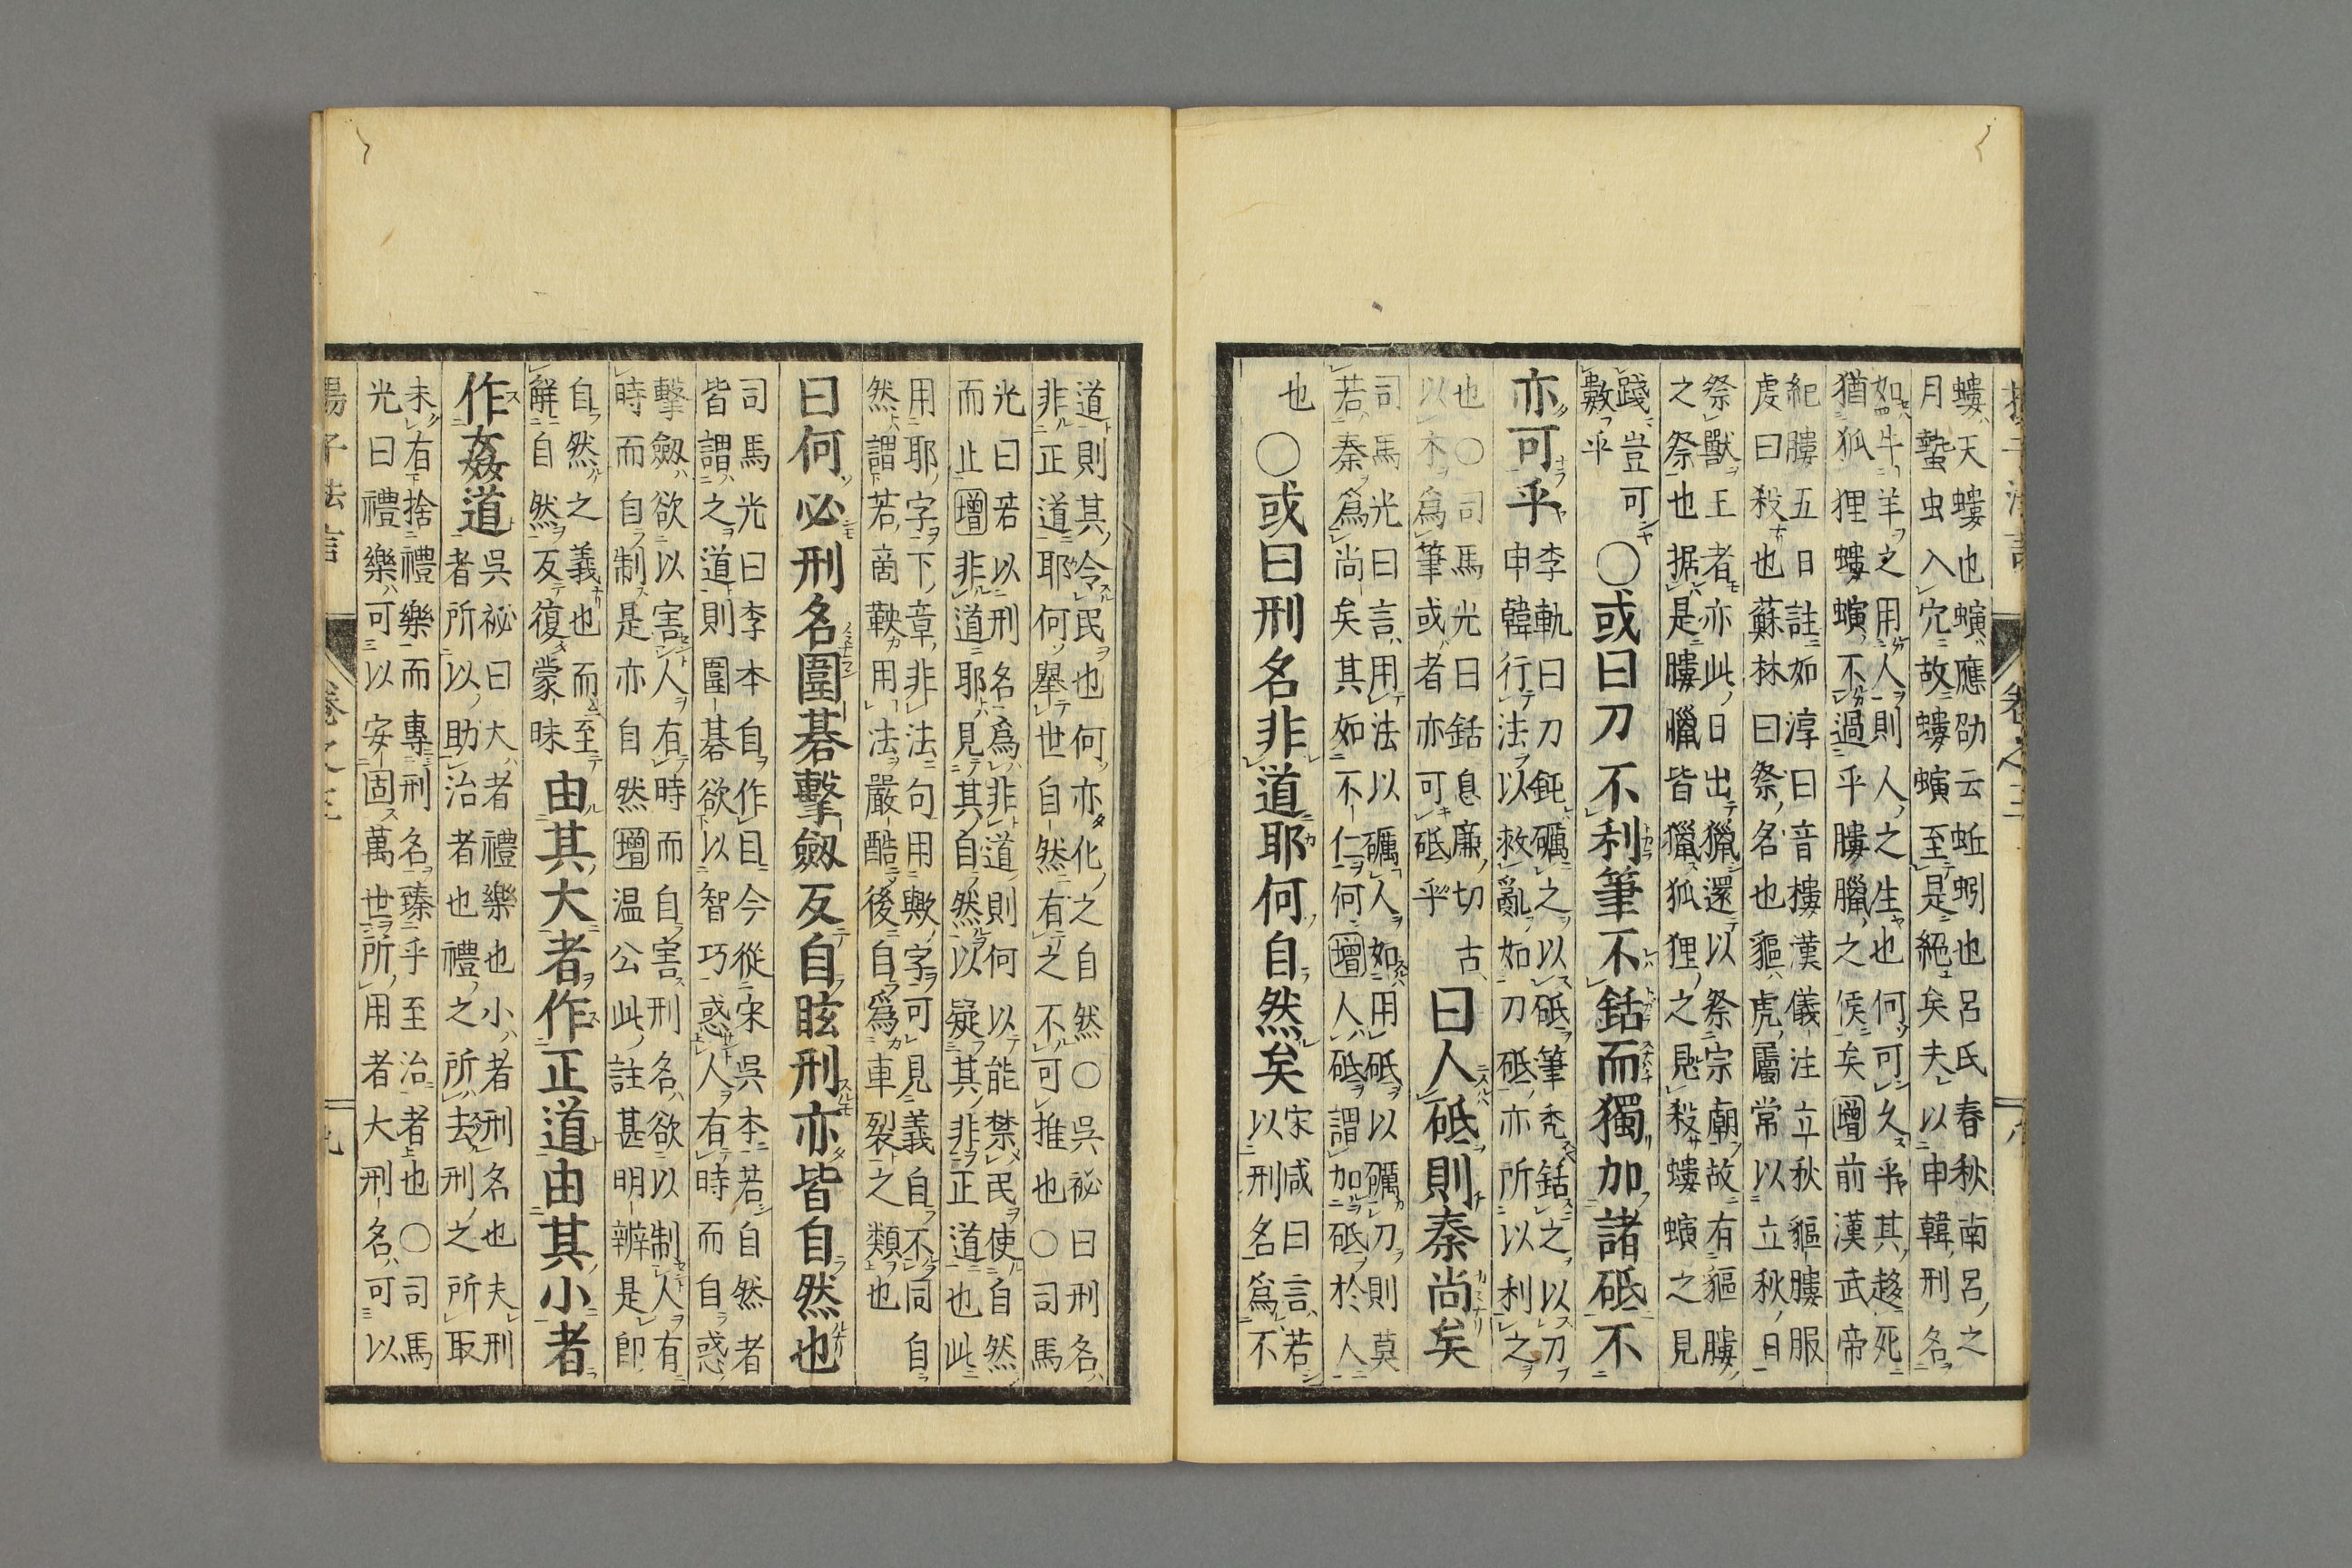 螻天螻也螾應劭云蚯蚓也呂氏春秋南呂之
月蟄虫入穴故螻螾至是絕矣夫以申韓刑名
如牛羊之用人則人之生也何可久乎其趍死
猶狐狸螻螾不過乎膢臘之候矣增前漢武帝
紀膢五日註如淳曰音樓漢儀注立秋貙膢服
虔曰殺也蘇林曰祭名也貙虎屬常以立秋日
祭獸王者亦此日出獵還以祭宗廟故有貙膢
之祭也据是膢臘皆獵狐狸之殺螻螾之見
踐豈可
數乎
○或曰刀不利筆不銛而獨加諸砥不
亦可乎
李軌曰刀鈍礪之以砥筆禿銛之以刀
申韓行法以救亂如刀砥亦所以利之
也○司馬光曰銛息廉切古
以木爲筆或者亦可砥乎
曰人砥則秦尚矣
司馬光曰言用法以礪人如用砥以礪刀則莫
若秦爲尚矣其如不仁何增人砥謂加砥於人
也
○或曰刑名非道耶何自然矣
宋咸曰言若
以刑名爲不
道則其令民也何亦化之自然○吳祕曰刑名
非正道耶何舉世自然有之不可推也○司馬
光曰若以刑名爲非道則何以能禁民使自然
而止增非道耶見其自然以疑其非正道也此
用耶字下章非法句用歟字可見義自不同自
然謂若商鞅用法嚴酷後自爲車裂之類也
曰何必刑名圍碁擊劔反自眩刑亦皆自然也
司馬光曰李本自作目今從宋吳本若自然者
皆謂之道則圍碁欲以智巧惑人有時而自惑
擊劔欲以害人有時而自害刑名欲以制人有
時而自制是亦自然增温公此註甚明辨是卽
自然之義也而至
解自然反復蒙昧
由其大者作正道由其小者
作姦道
吳祕曰大者禮樂也小者刑名也夫刑
者所以助治者也禮之所去刑之所取
未有捨禮樂而專刑名臻乎至治者也○司馬
光曰禮樂可以安固萬世所用者大刑名可以